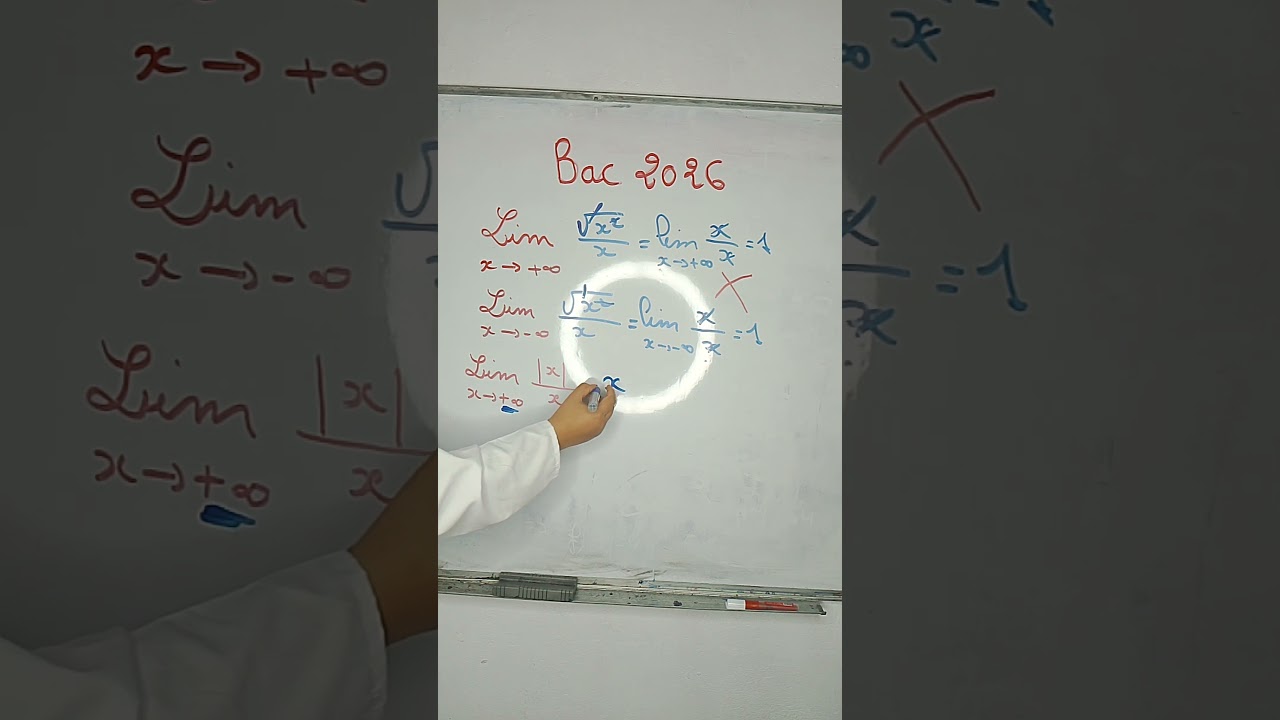 Bac 2026
Lim x→+∞ √x² / x = lim x→+∞ x/x = 1
Lim x→-∞ √x² / x = lim x→-∞ x/x = 1
Lim x→+∞ |x| / x x